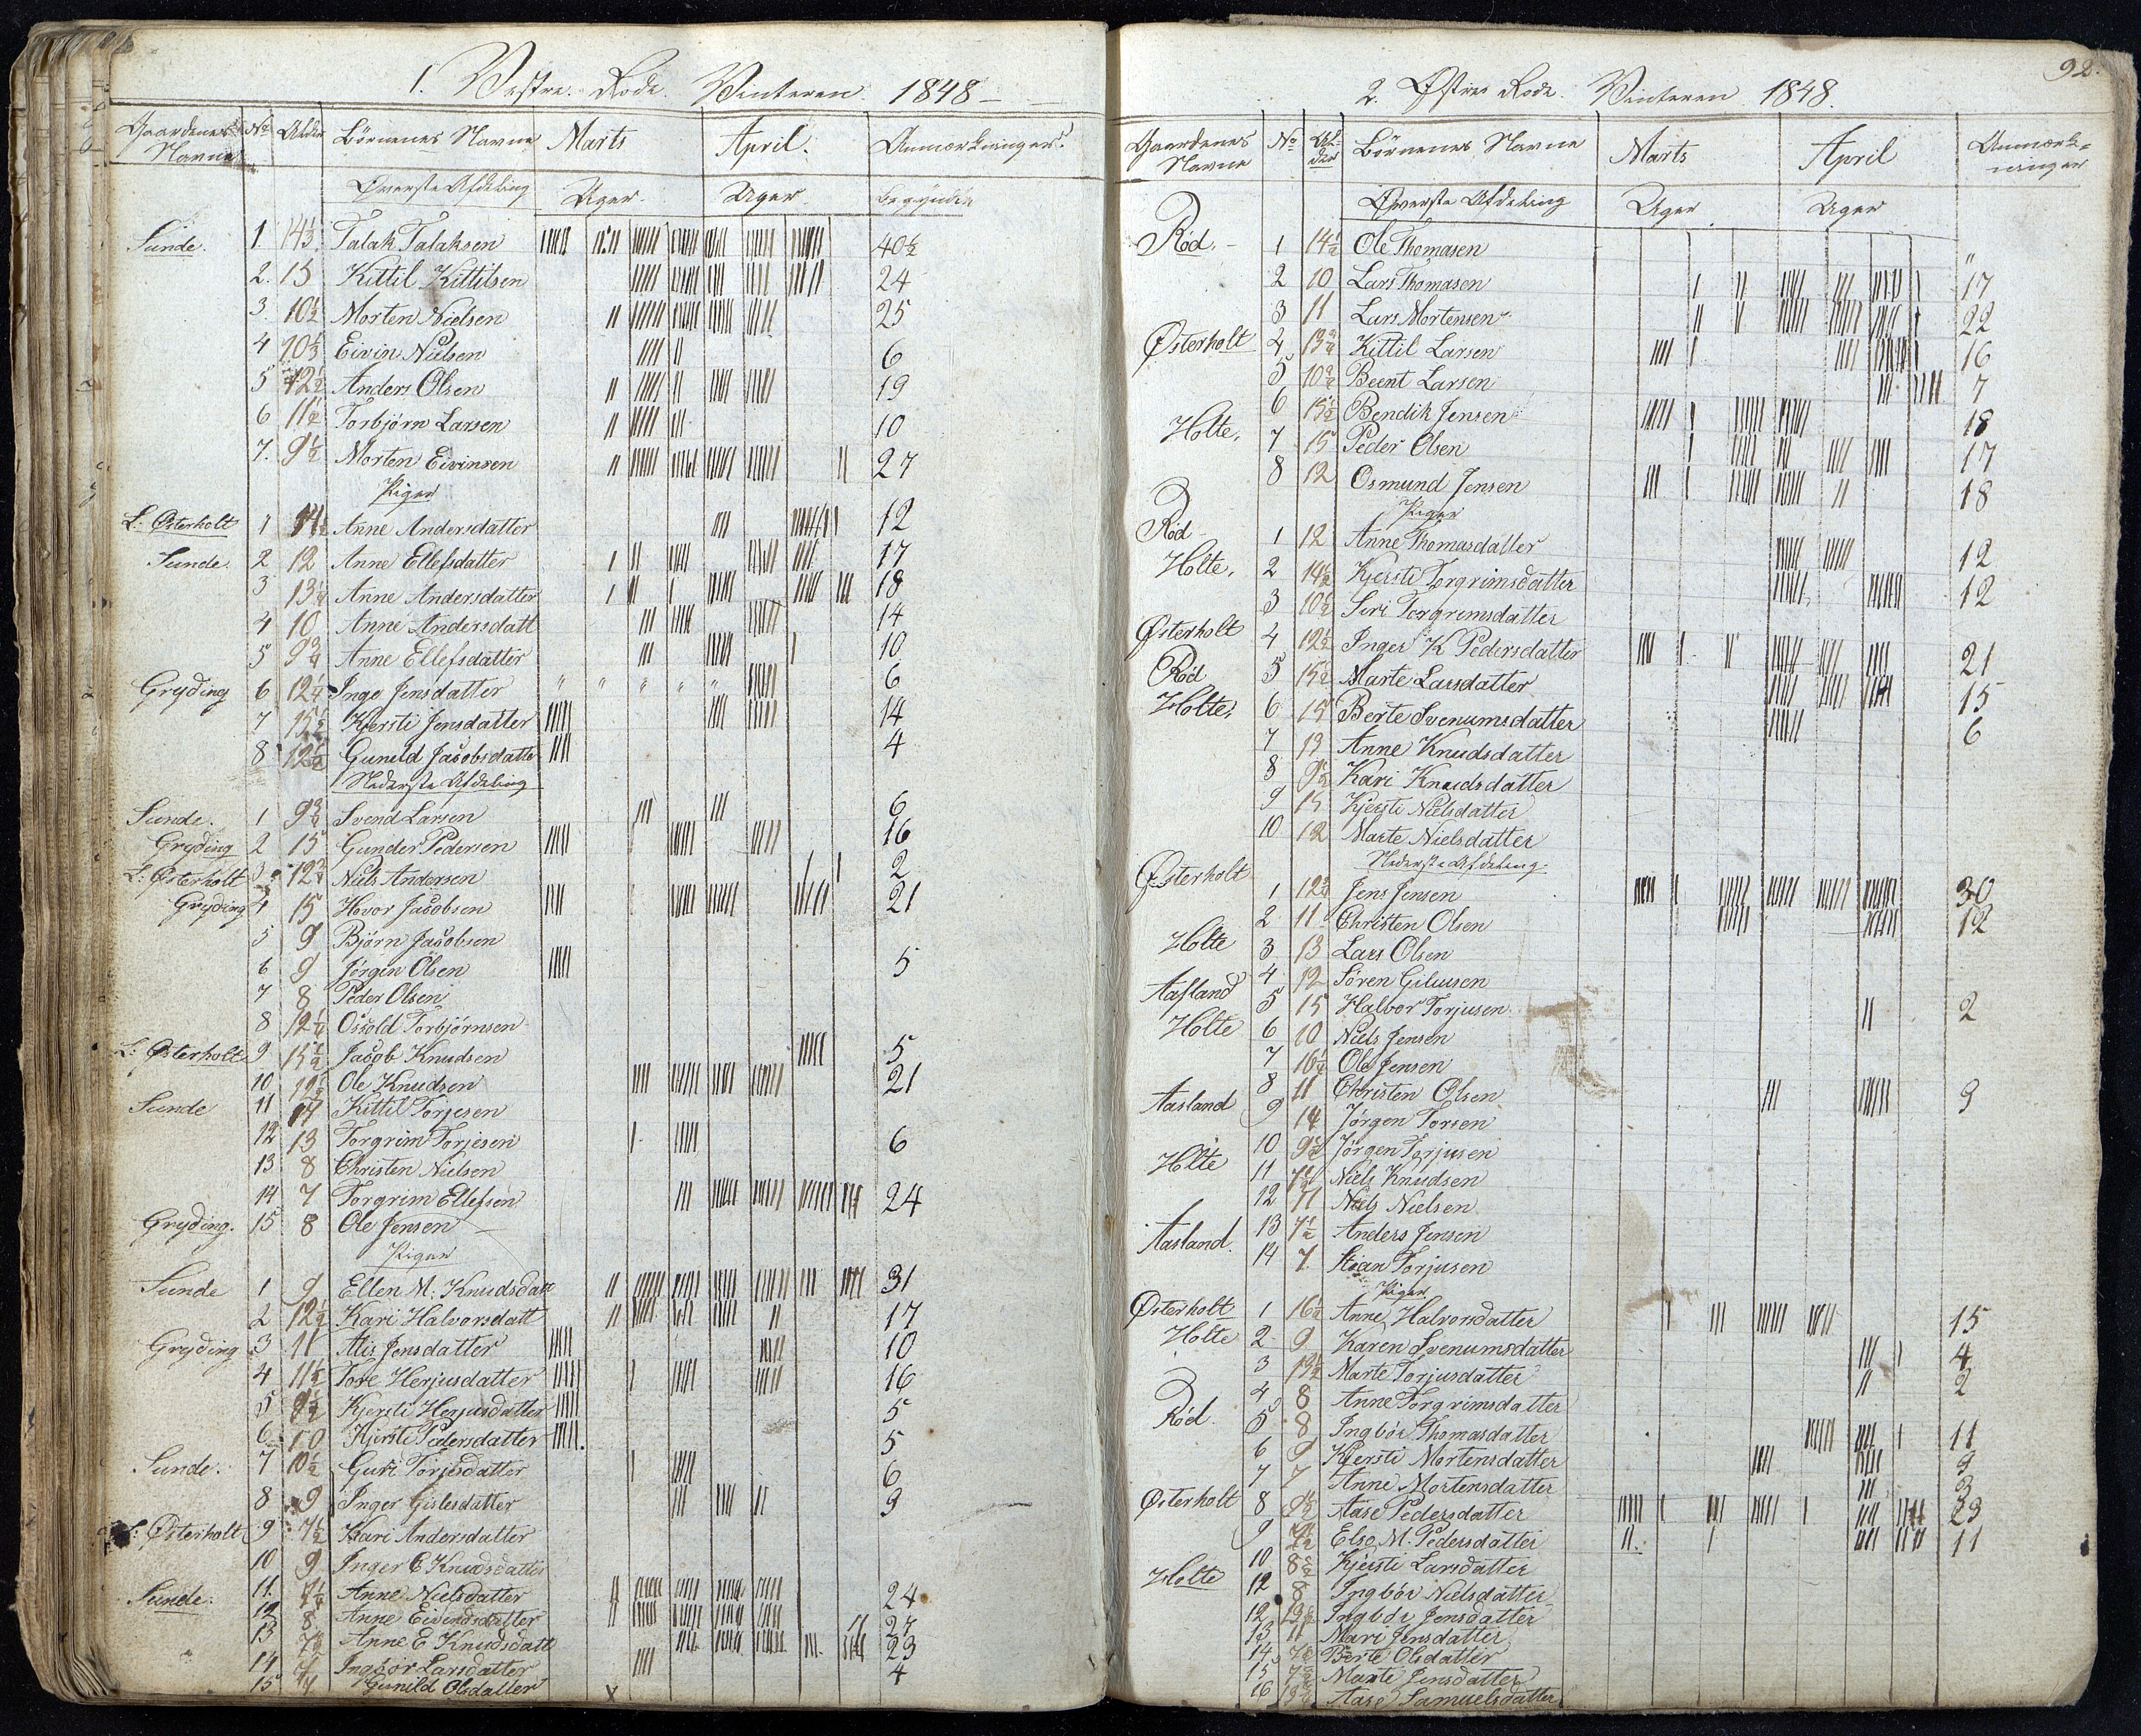 1. Vestre Rode. Vinteren 1848
Gaardenes Navne No Alder Børnenes Navne Marts April. Anmærkninger.
Øverste Afdeling Uger Uger. begyndte
Sunde. 1 14⅓ Talak Talaksen 40½
2. 15 Kittil Kittilsen 24
3. 10½ Morten Nielsen 25
4 10⅓ Eivin Nielsen 6
5 12½ Anders Olsen 19
6 11½ Torbjørn Larsen 10
7. 9½ Morten Eivinsen 27
Piger
L. Østerholt 1 14½ Anne Andersdatter 12
Sunde. 2 12 Anne Ellefsdatter 17
3 13¼ Anne Andersdatter 18
4 10 Anne Andersdatt 14
5 9¾ Anne Ellefsdatter 10
Gryding 6 12¼ Inge Jensdatter " " " " " 6
7 15½ Kjersti Jensdatter 14
8 12½ Gunild Jacobsdatter 4
Nederste Afdeling
Sunde. 1 9¾ Svend Larsen 6
Gryding 2 15 Gunder Pedersen 16
L. Østerholt 3 12¾ Niels Andersen 2
Gryding 4 15 Hovor Jacobsen 21
5 9 Bjørn Jacobsen
6 9 Jørgen Olsen 5
7 8 Peder Olsen
8 12¼ Ossold Torbjørnsen
L. Østerholt 9 15½ Jacob Knudsen 5
10 12½ Ole Knudsen 21
Sunde 11 14 Kittil Torjesen
12 13 Torgrim Torjesen 6
13 8 Christen Nielsen
14 7 Torgrim Ellefsen 24
Gryding. 15 8 Ole Jensen
Piger
Sunde 1 9 Ellen M. Knudsdatt 31
2 12½ Kari Halvorsdatt 17
Gryding 3 11 Alis Jensdatter 10
4 11½ Tore Herjusdatter 16
5 9½ Kjersti Herjusdatter 5
6 10 Kjersti Pedersdatter 5
Sunde. 7 10½ Guri Torjesdatter 6
8 9 Inger Gislesdatter 9
L. Østerholt 9 7½ Kari Andersdatter
10 9 Inger E Knudsdatter
Sunde. 11. 7½ Anne Nielsdatter 24
12 8 Anne Eivindsdatter 27
13 Anne E Knudsdatt 23
14 7 Ingbor Larsdatter 4
15 Gunild Olsdatter
92.
2. Østre Rode. Vinteren 1848.
Gaardenes Navne No Alder Børnenes Navne Marts April Anmærkninger
Øverste Afdeling Uger Uger
Röd. 1 14½ Ole Thomasen "
2 10 Lars Thomasen 17
3 11 Lars Mortensen 22
Østerholt 4 13¾ Kittil Larsen 16
5 10¾ Beent Larsen 7
6 15½ Bendik Jensen 18
Holte. 7 15 Peder Olsen 17
8 12 Osmund Jensen 18
Piger
Röd 1 12 Anne Thomasdatter 12
Holte. 2 14½ Kjersti Torgrimsdatter 12
3 10½ Siri Torgrimsdatter
Østerholt 4 12½ Inger K Pedersdatter 21
Röd 5 15½ Marte Larsdatter 15
Holte. 6 15 Berte Svenumsdatter 6
7 13 Anne Knudsdatter
8 9½ Kari Knudsdatter
9 15 Kjersti Nielsdatter
10 12 Marte Nielsdatter
Nederste Afdeling
Østerholt 1 12¾ Jens Jensen 30
2 11 Christen Olsen 12
Holte 3 13 Lars Olsen
Aasland 4 12 Sören
5 15 Halvor Torjusen 2
Holte 6 10 Niels Jensen
7 16½ Ole Jensen
8 11 Christen Olsen 9
Aasland 9 14 Jørgen Torsen
10 9½ Jørgen Torjusen
Holte 11 7½ Niels Knudsen
12 11 Niels Nielsen
Aasland. 13 7½ Anders Jensen
14 7 Stian Torjusen
Piger
Østerholt 1 16½ Anne Halvorsdatter 15
Holte 2 9 Karen Svenumsdatter 4
3 13½ Marte Torjusdatter 2
4 8 Anne Torgrimsdatter
Röd. 5 8 Ingbör Thomasdatter 11
6 9 Kjersti Mortensdatter 9
7 7 Anne Mortensdatter 3
Østerholt 8 9½ Aase Pedersdatter 23
9 7½ Else M. Pedersdatter 11
10 8½ Kjersti Larsdatter
Holte 12 8 Ingbör Nielsdatter
12 13½ Ingbör Jensdatter
13 11 Mari Jensdatter
14 7½ Berte Olsdatter
15 7½ Marte Jensdatter
16 Aase Samuelsdatter